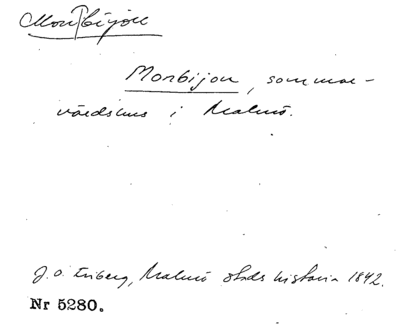 Monbijou
Monbijou, sommar-
värdshus i Malmö.
J. O. Friberg, Malmö stads historia 1842.
Nr 5280.